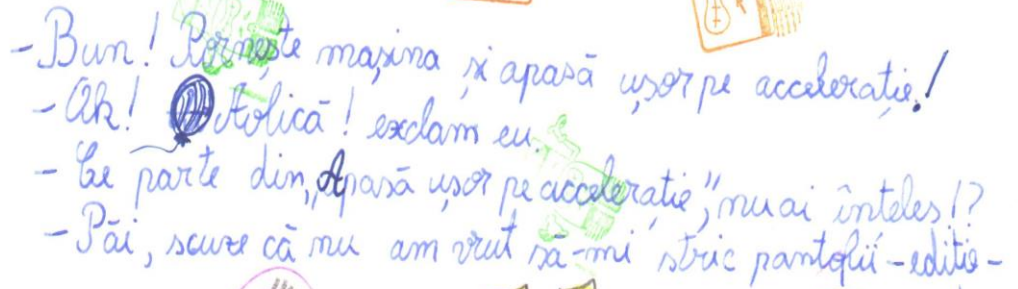 - Bun! Pornește mașina și apasă ușor pe accelerație!
- Ok! Aolică! exclam eu.
- Ce parte din „Apasă ușor pe accelerație", nu ai înteles!?
- Păi, scuze că nu am vrut să-mi stric pantofii - editie -